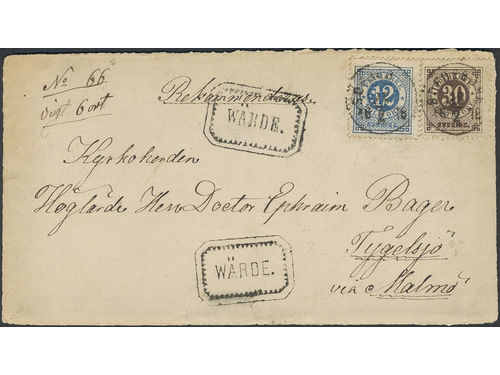 No 66
vigt 6 ort
Rekommenderas
WÄRDE.
12
30
SVERIGE
Kyrkoherden
Höglärde Herr Doctor Ephraim Bager
Tygelsjö
WÄRDE.
via Malmö